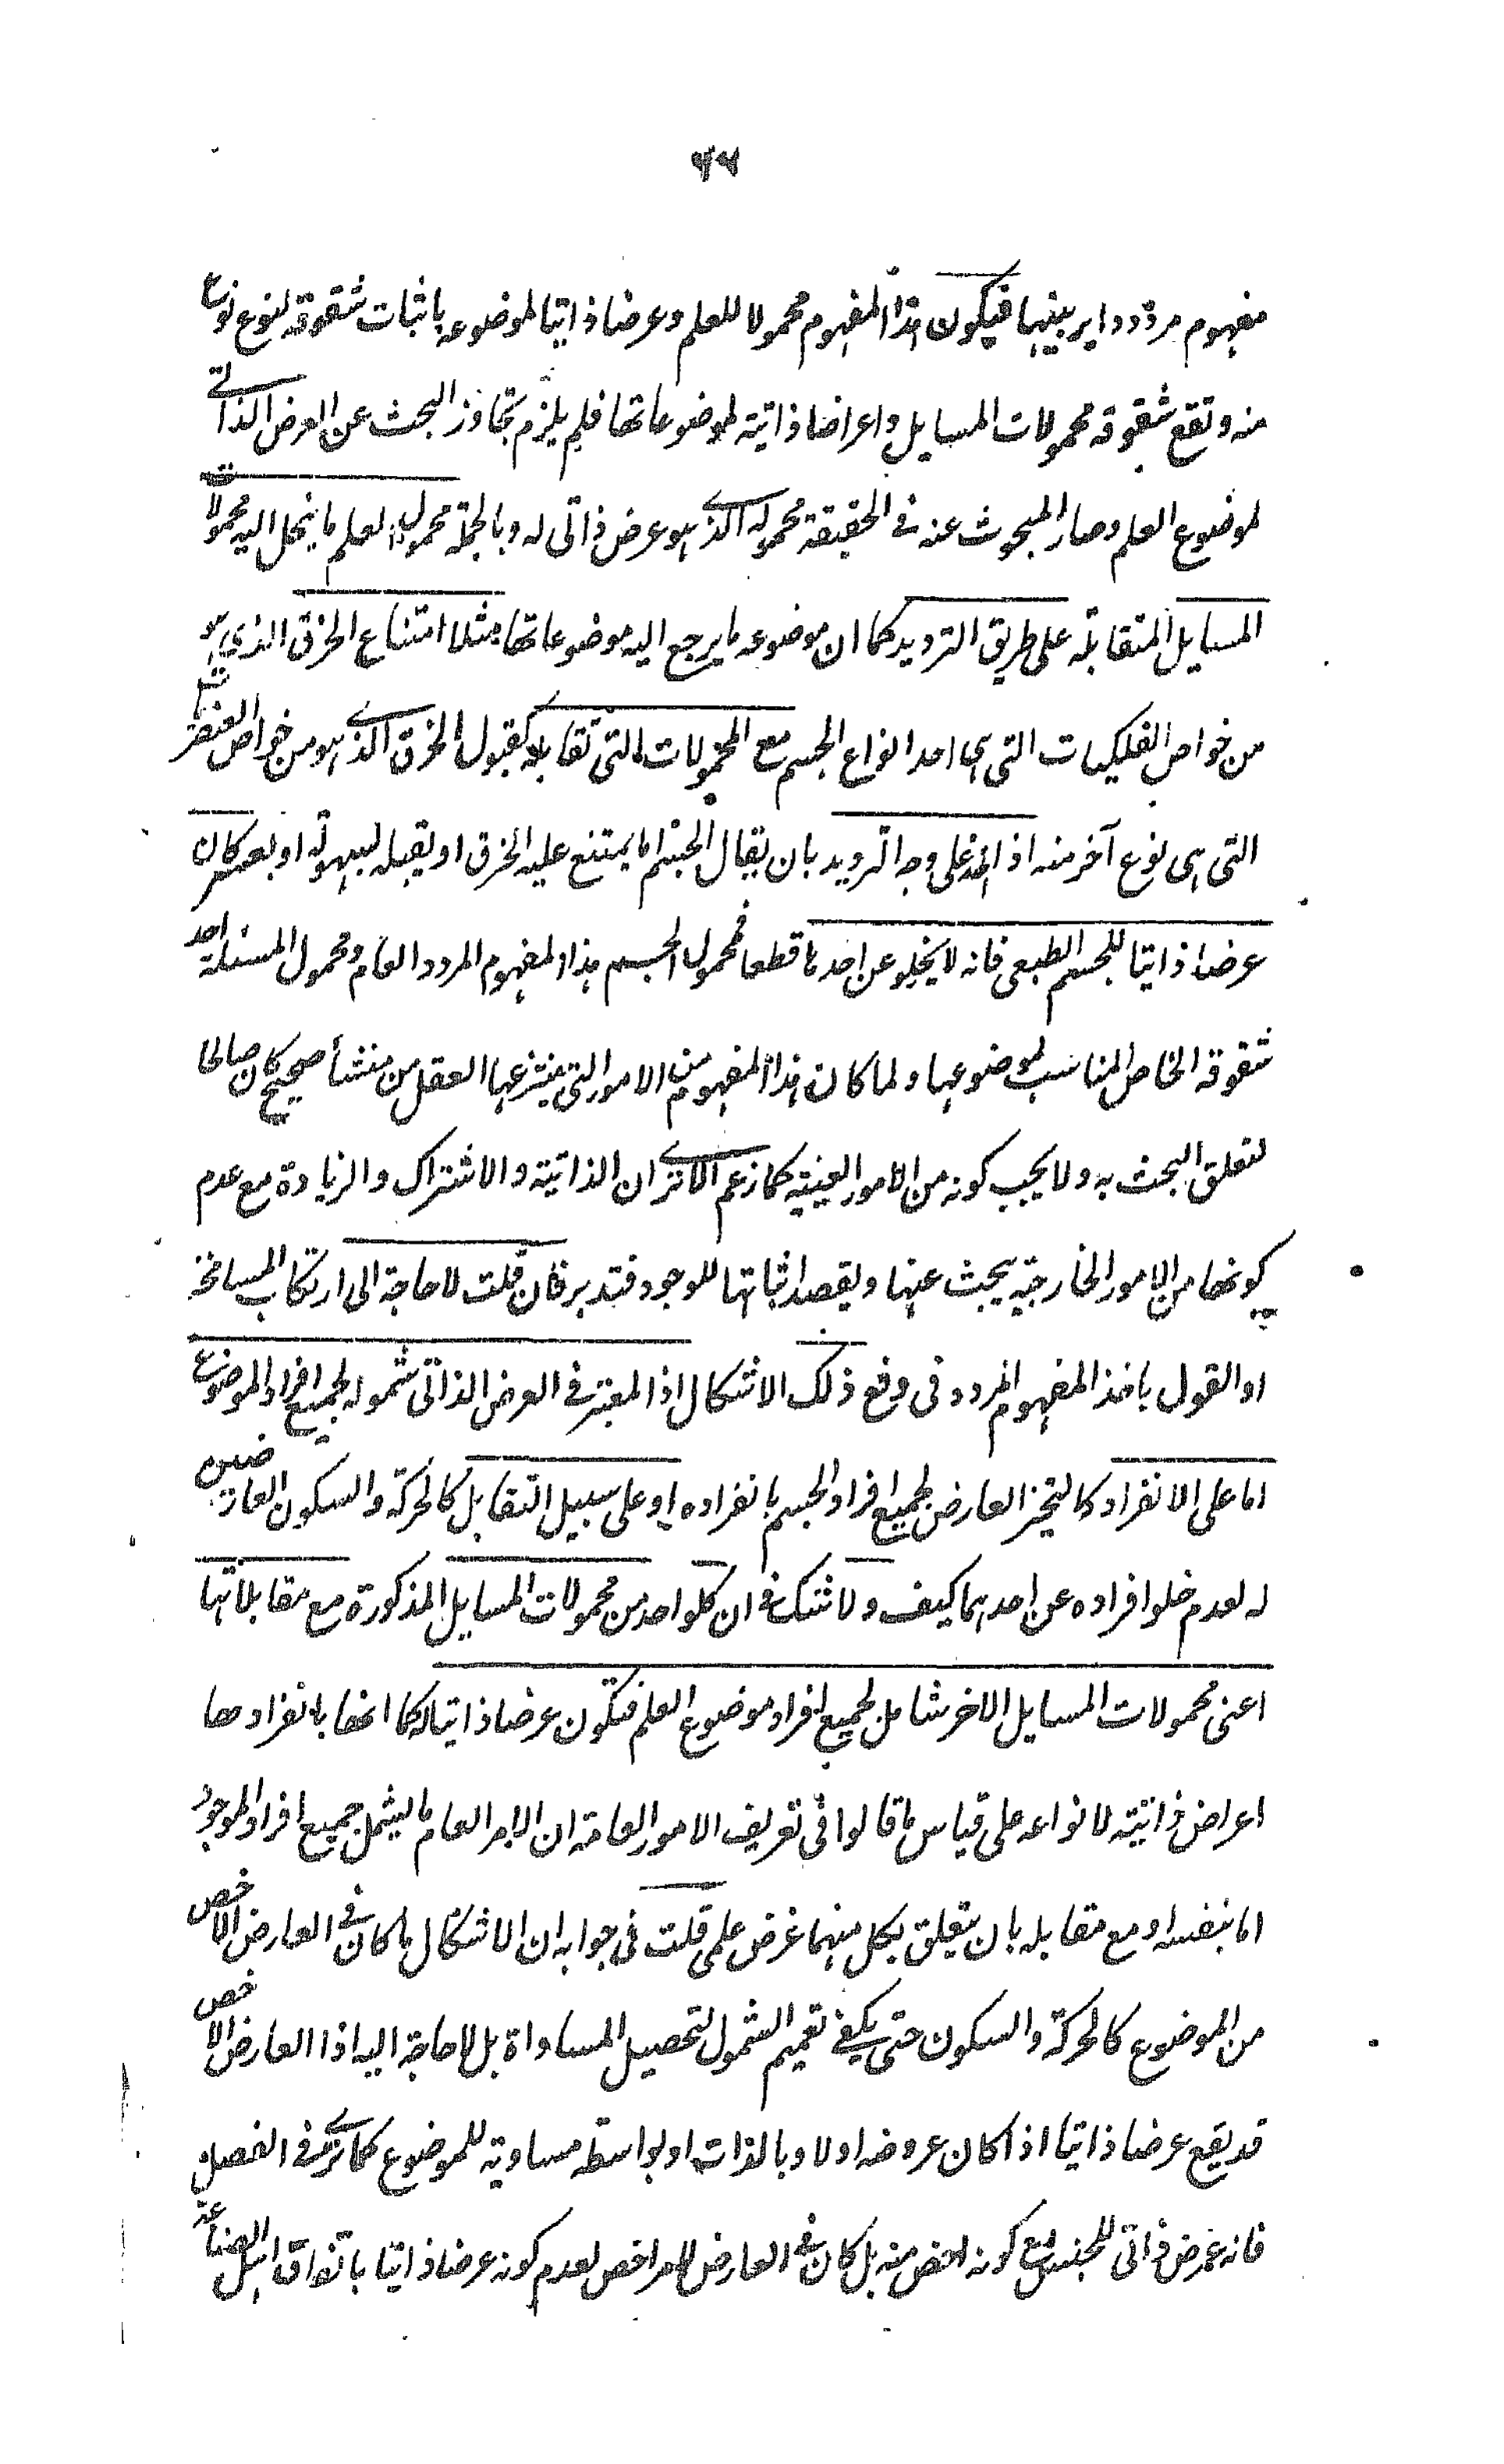 ٣٦
مفهوم مردد دایر بینها فیکون هذا المفهوم محمولا للعلم وعرضا ذاتیا لموضوعه باثبات شقوقه لنوع نوع
منه وتقع شقوقه محمولات المسایل واعراضا ذاتیة لموضوعاتها فلم یلزم تجاوز البحث عن العرض الذاتی
لموضوع العلم وصار المبحوث عنه فی الحقیقة محموله الذی هو عرض ذاتی له وبالجملة محمول العلم ما ینحل الیه محمولات
المسایل المتقابلة علی طریق التردید کما ان موضوعه ما یرجع الیه موضوعاتها مثلا امتناع الخرق الذی هو
من خواص الفلکیات التی هی احد انواع الجسم مع المحمولات التی تقابله کقبول الخرق الذی هو من خواص العنصریات
التی هی نوع آخر منه اذا اخذ علی وجه التردید بان یقال الجسم اما یمتنع علیه الخرق او یقبله بسهولة او بعسر کان
عرضا ذاتیا للجسم الطبعی فانه لا یخلو عن احدها قطعا فمحمول الجسم هذا المفهوم المردد العام ومحمول المسئلة احد
شقوقه الخاص المناسب لموضوعها ولما کان هذا المفهوم من الامور التی ینتزعها العقل من منشأ صحیح کان صالحا
لتعلق البحث به ولا یجب کونه من الامور العینیة کما زعم الا تری ان الذاتیة والاشتراک والزیادة مع عدم
کونها من الامور الخارجیة یبحث عنها ویقصد اثباتها للوجود فتدبر فان قلت لا حاجة الی ارتکاب المسامحة
او القول باخذ المفهوم المردد فی دفع ذلک الاشکال اذ المعتبر فی العرض الذاتی شموله لجمیع افراد الموضوع
اما علی الانفراد کالتحیز العارض لجمیع افراد الجسم بانفراده او علی سبیل التقابل کالحرکة والسکون العارضین
له لعدم خلو افراده عن احدهما کیف ولا شک فی ان کلواحد من محمولات المسایل المذکورة مع مقابلاتها
اعنی محمولات المسایل الاخر شامل لجمیع افراد موضوع العلم فتکون عرضا ذاتیا له کما انها بانفرادها
اعراض ذاتیة لانواعه علی قیاس ما قالوا فی تعریف الامور العامة ان الامر العام ما یشمل جمیع افراد الموجود
اما بنفسه او مع مقابله بان یتعلق بکل منهما غرض علمی قلت فی جوابه ان الاشکال ما کان فی العارض الاخص
من الموضوع کالحرکة والسکون حتی یکفی تعمیم الشمول لتحصیل المساواة بل لا حاجة الیه اذ العارض الاخص
قد یقع عرضا ذاتیا اذا کان عروضه اولا وبالذات او بواسطه مساویة للموضوع کما تری فی الفصل
فانه عرض ذاتی للجنس مع کونه اخص منه بل کان فی العارض لامر اخص لعدم کونه عرضا ذاتیا باتفاق اهل الصناعة